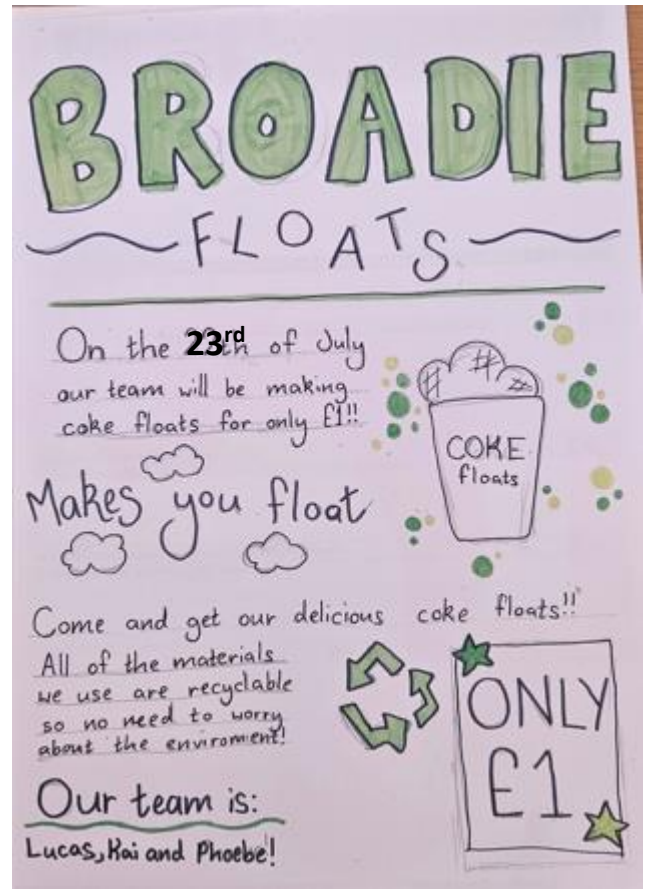 BROADIE
FLOATS
On the 23rd of July
our team will be making
coke floats for only £1!!
COKE
floats
Makes you float
Come and get our delicious coke floats!!
All of the materials
we use are recyclable
so no need to worry
about the enviroment!
ONLY
£1
Our team is:
Lucas, Kai and Phoebe!